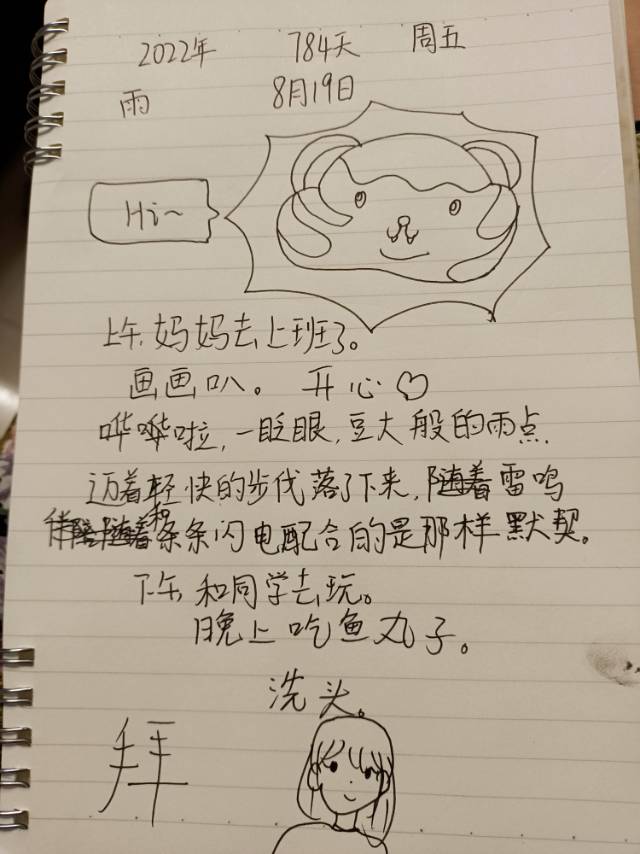 2022年 784天 周五
雨 8月19日
Hi~
上午,妈妈去上班了。
画画叭。 开心♡
哗哗啦,一眨眼,豆大般的雨点
迈着轻快的步伐落了下来,随着雷鸣
和条条闪电配合的是那样默契。
下午和同学去玩。
晚上吃鱼丸子。
洗头。
拜